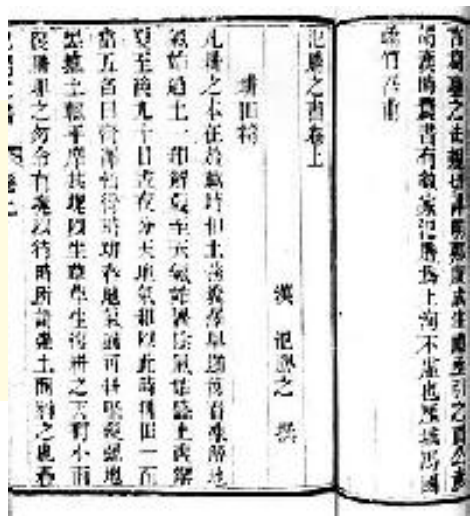 謂漢時農書有數家氾勝爲上洵不虛也歷城馬國
翰竹吾甫
氾勝之書卷上
漢 氾勝之 撰
耕田
凡耕之本在於趣時和土務糞澤早鋤穫春凍解地
氣始通土一和解夏至天氣始暑陰氣始盛土復解
夏至後九十日晝夜分天地氣和以此時耕田一而
當五名曰膏澤皆得時功春地氣通可耕堅硬強地
黑壚土輒平摩其塊以生草草生復耕之天有小雨
復耕和之勿令有塊以待時所謂強土而弱之也春